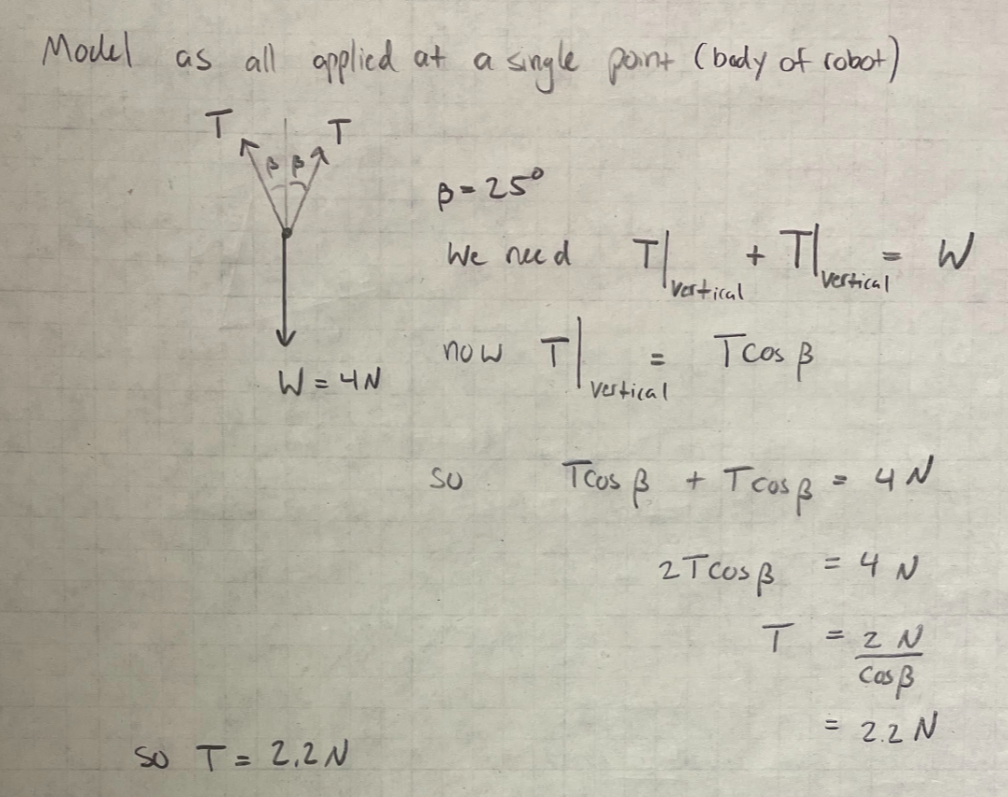 Model as all applied at a single point (body of robot)
T T
β β
β = 25°
We need T|vertical + T|vertical = W
now T|vertical = Tcos β
W = 4N
so Tcos β + Tcos β = 4 N
2Tcos β = 4 N
T = 2 N / cos β
= 2.2 N
so T = 2.2N